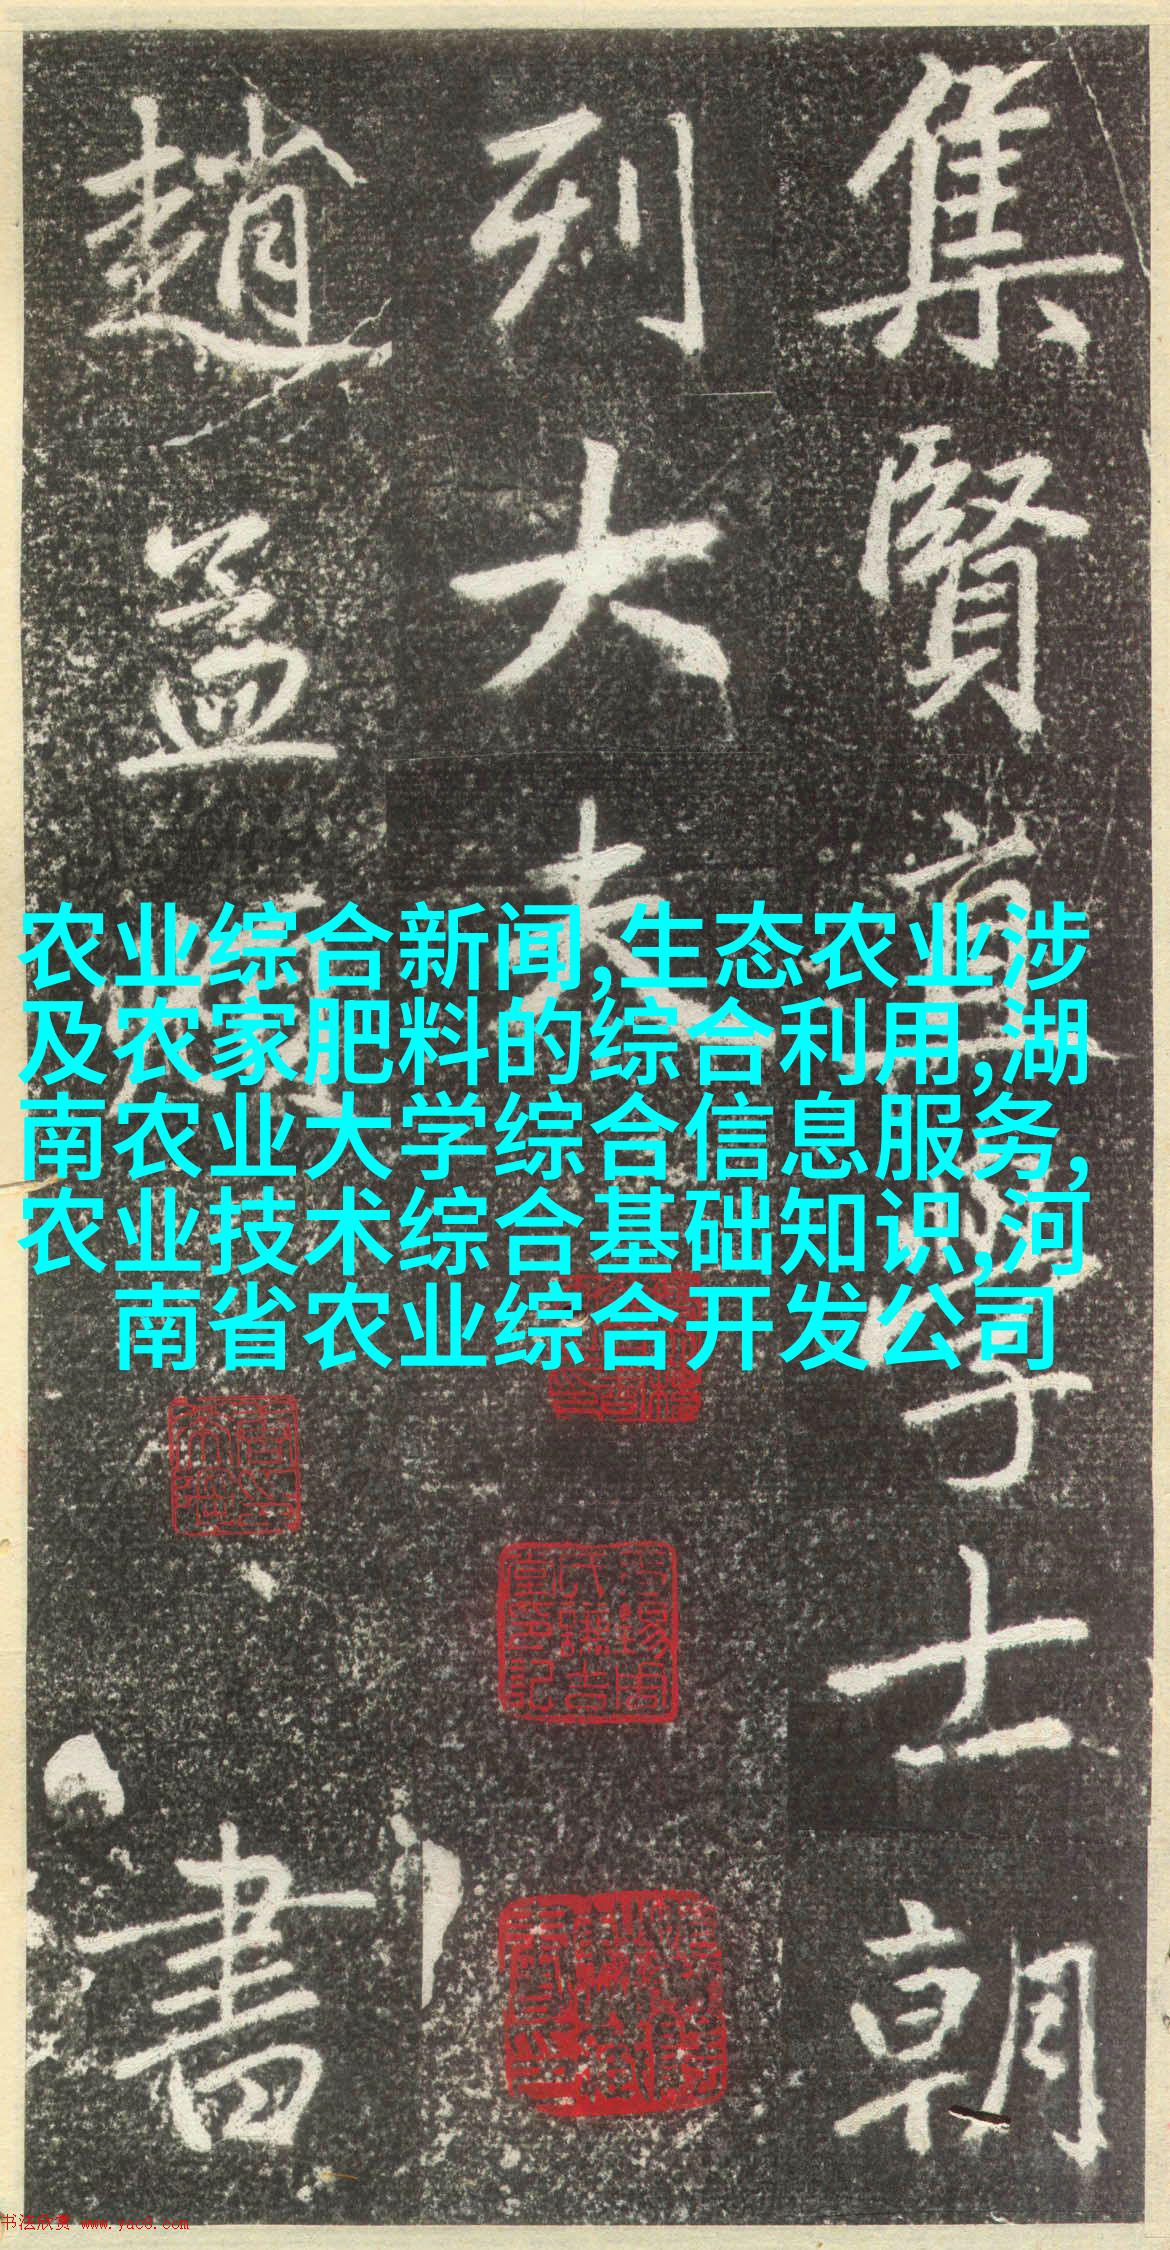 集賢直學士朝
列大夫
趙孟
書
农业综合新闻,生态农业涉
及农家肥料的综合利用,湖
南农业大学综合信息服务,
农业技术综合基础知识,河
南省农业综合开发公司
书法欣赏 www.yac8.com